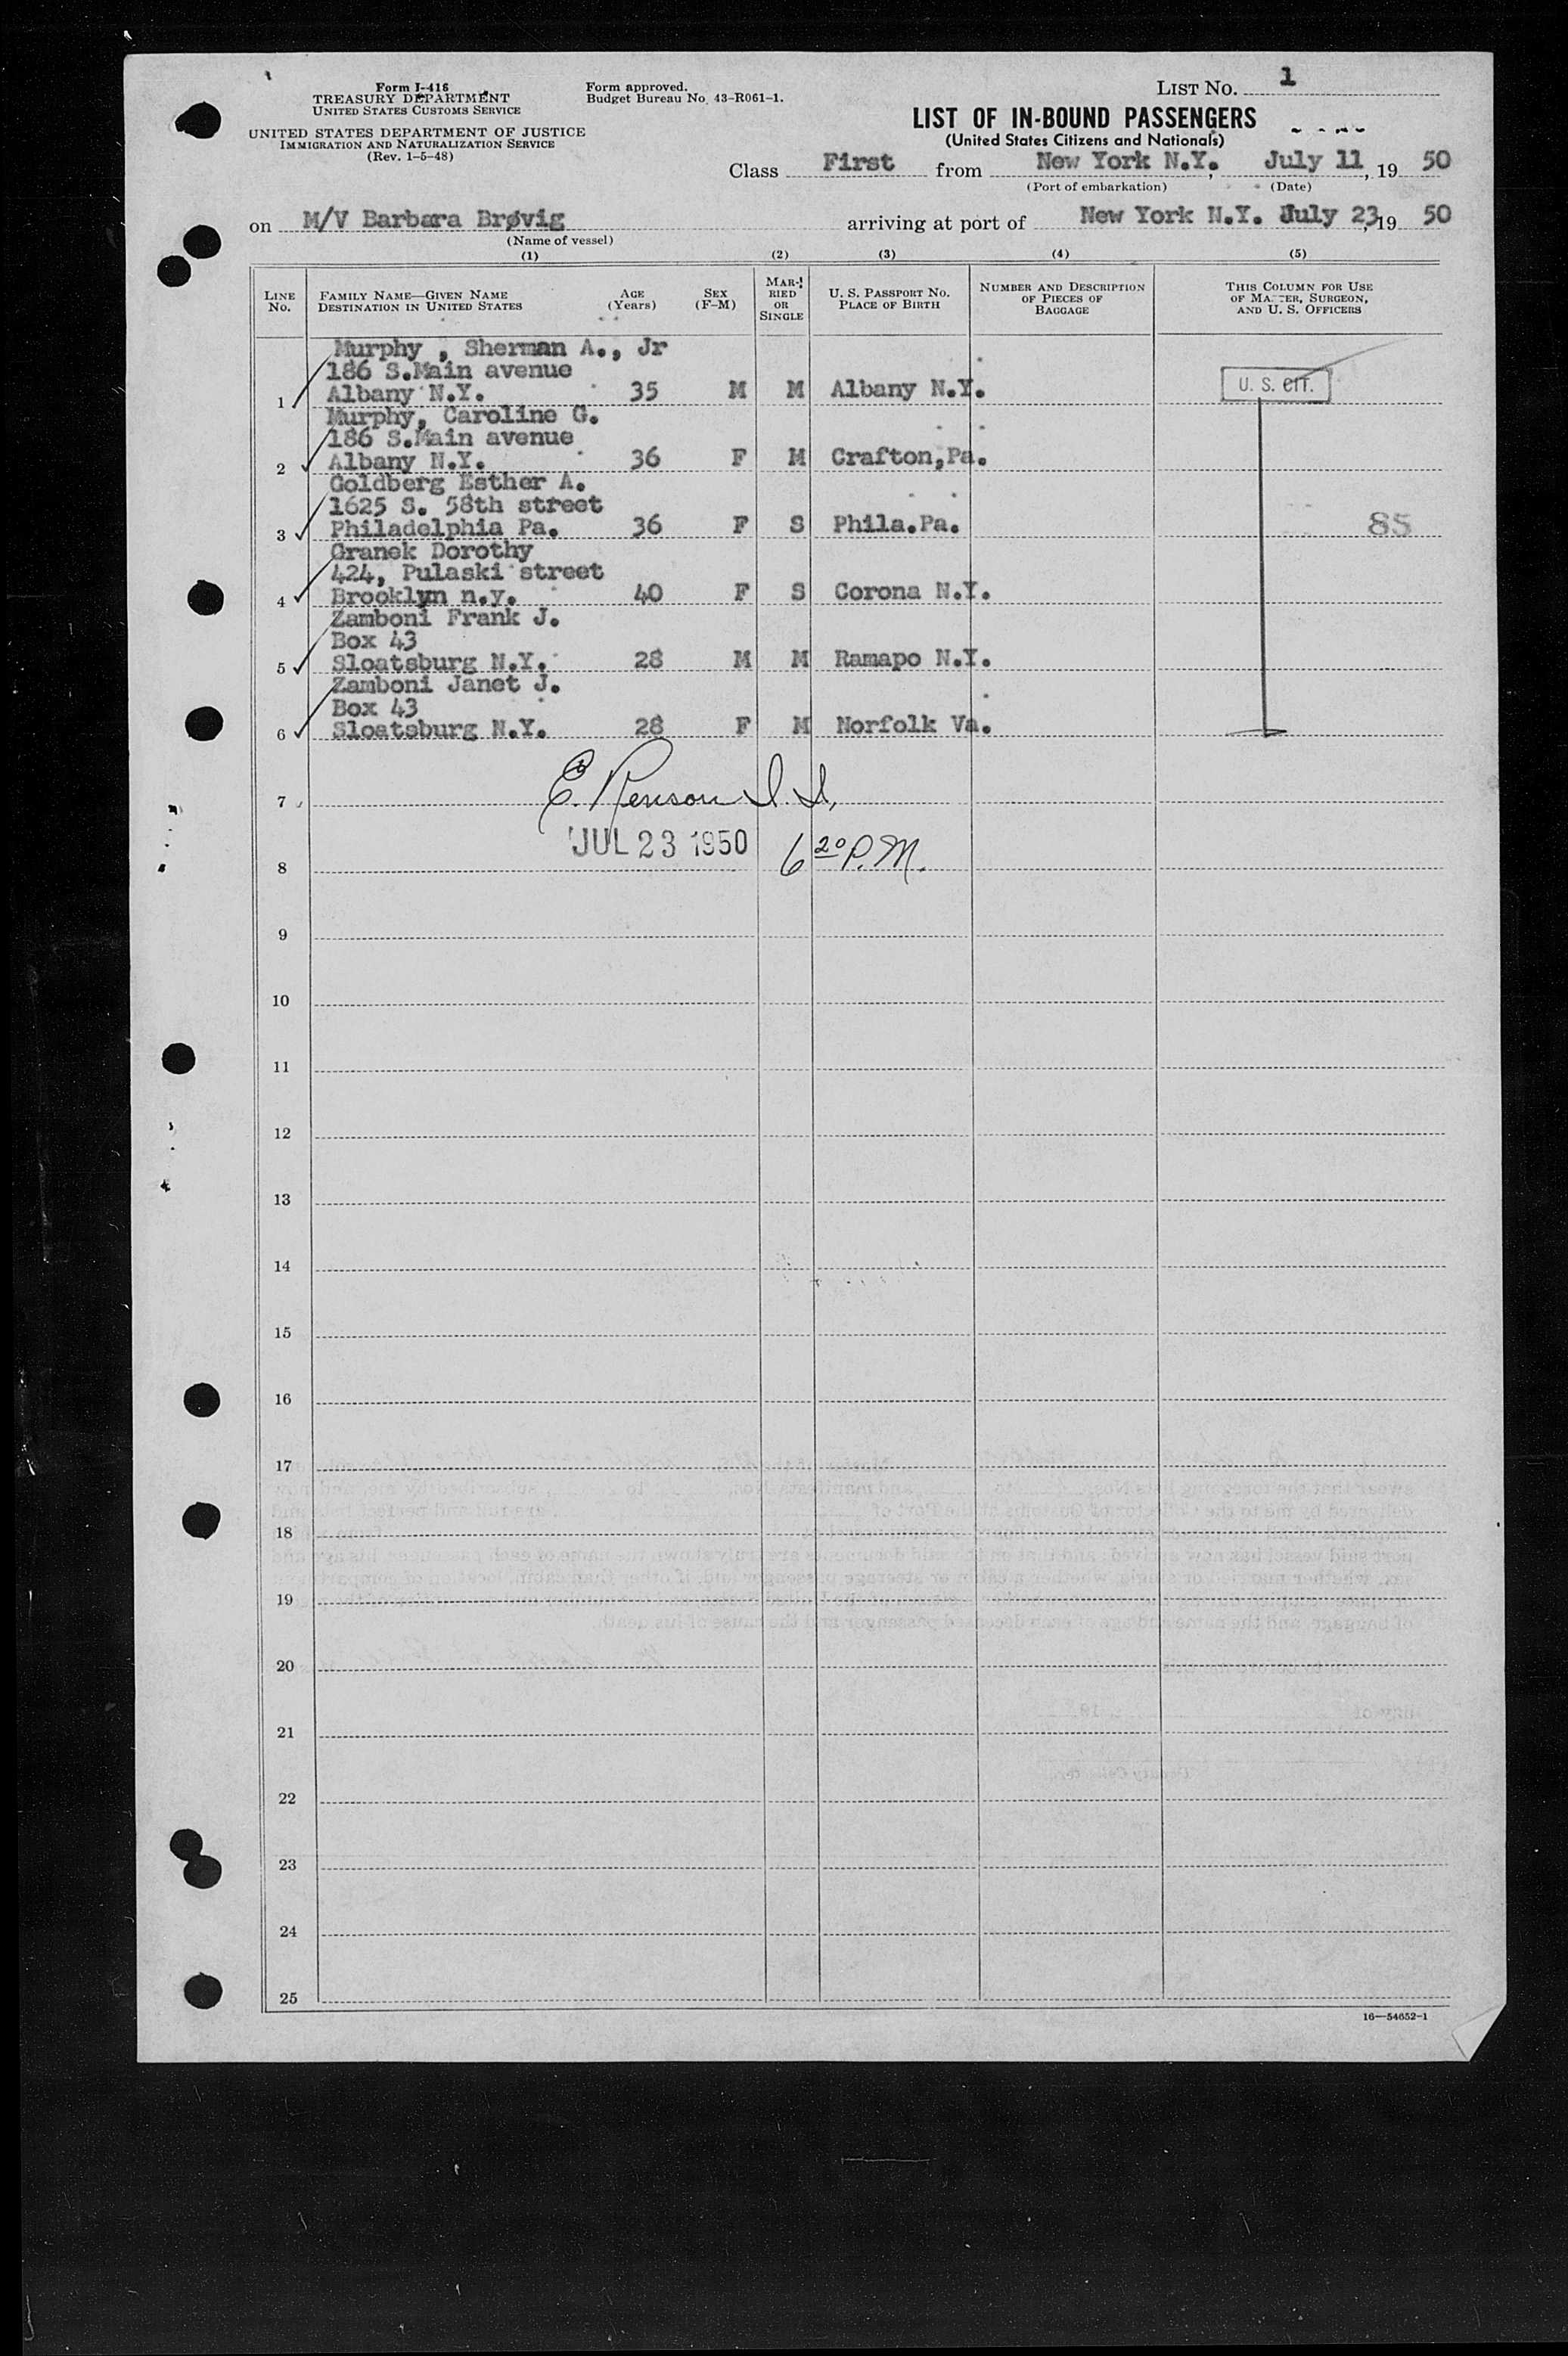 Form I-416
TREASURY DEPARTMENT
UNITED STATES CUSTOMS SERVICE
UNITED STATES DEPARTMENT OF JUSTICE
IMMIGRATION AND NATURALIZATION SERVICE
(Rev. 1-5-48)
Form approved.
Budget Bureau No. 43-R061-1.
LIST NO. 1
LIST OF IN-BOUND PASSENGERS
(United States Citizens and Nationals)
Class First from New York N.Y., July 11, 19 50
(Port of embarkation) (Date)
on M/V Barbara Brøvig arriving at port of New York N.Y. July 23, 19 50
(Name of vessel)
(1) (2) (3) (4) (5)
LINE NO.
FAMILY NAME—GIVEN NAME
DESTINATION IN UNITED STATES
AGE (Years)
SEX (F-M)
MARRIED OR SINGLE
U. S. PASSPORT NO.
PLACE OF BIRTH
NUMBER AND DESCRIPTION OF PIECES OF BAGGAGE
THIS COLUMN FOR USE OF MASTER, SURGEON, AND U. S. OFFICERS
Murphy , Sherman A., Jr
186 S.Main avenue
1 Albany N.Y. 35 M M Albany N.Y. U. S. CIT.
Murphy, Caroline G.
186 S.Main avenue
2 Albany N.Y. 36 F M Crafton,Pa.
Goldberg Esther A.
1625 S. 58th street
3 Philadelphia Pa. 36 F S Phila.Pa. 85
Granek Dorothy
424, Pulaski street
4 Brooklyn n.y. 40 F S Corona N.Y.
Zamboni Frank J.
Box 43
5 Sloatsburg N.Y. 28 M M Ramapo N.Y.
Zamboni Janet J.
Box 43
6 Sloatsburg N.Y. 28 F M Norfolk Va.
7 E. Renson I. I.
JUL 23 1950 6 20 P.M.
8
9
10
11
12
13
14
15
16
17
18
19
20
21
22
23
24
25
16—54652-1